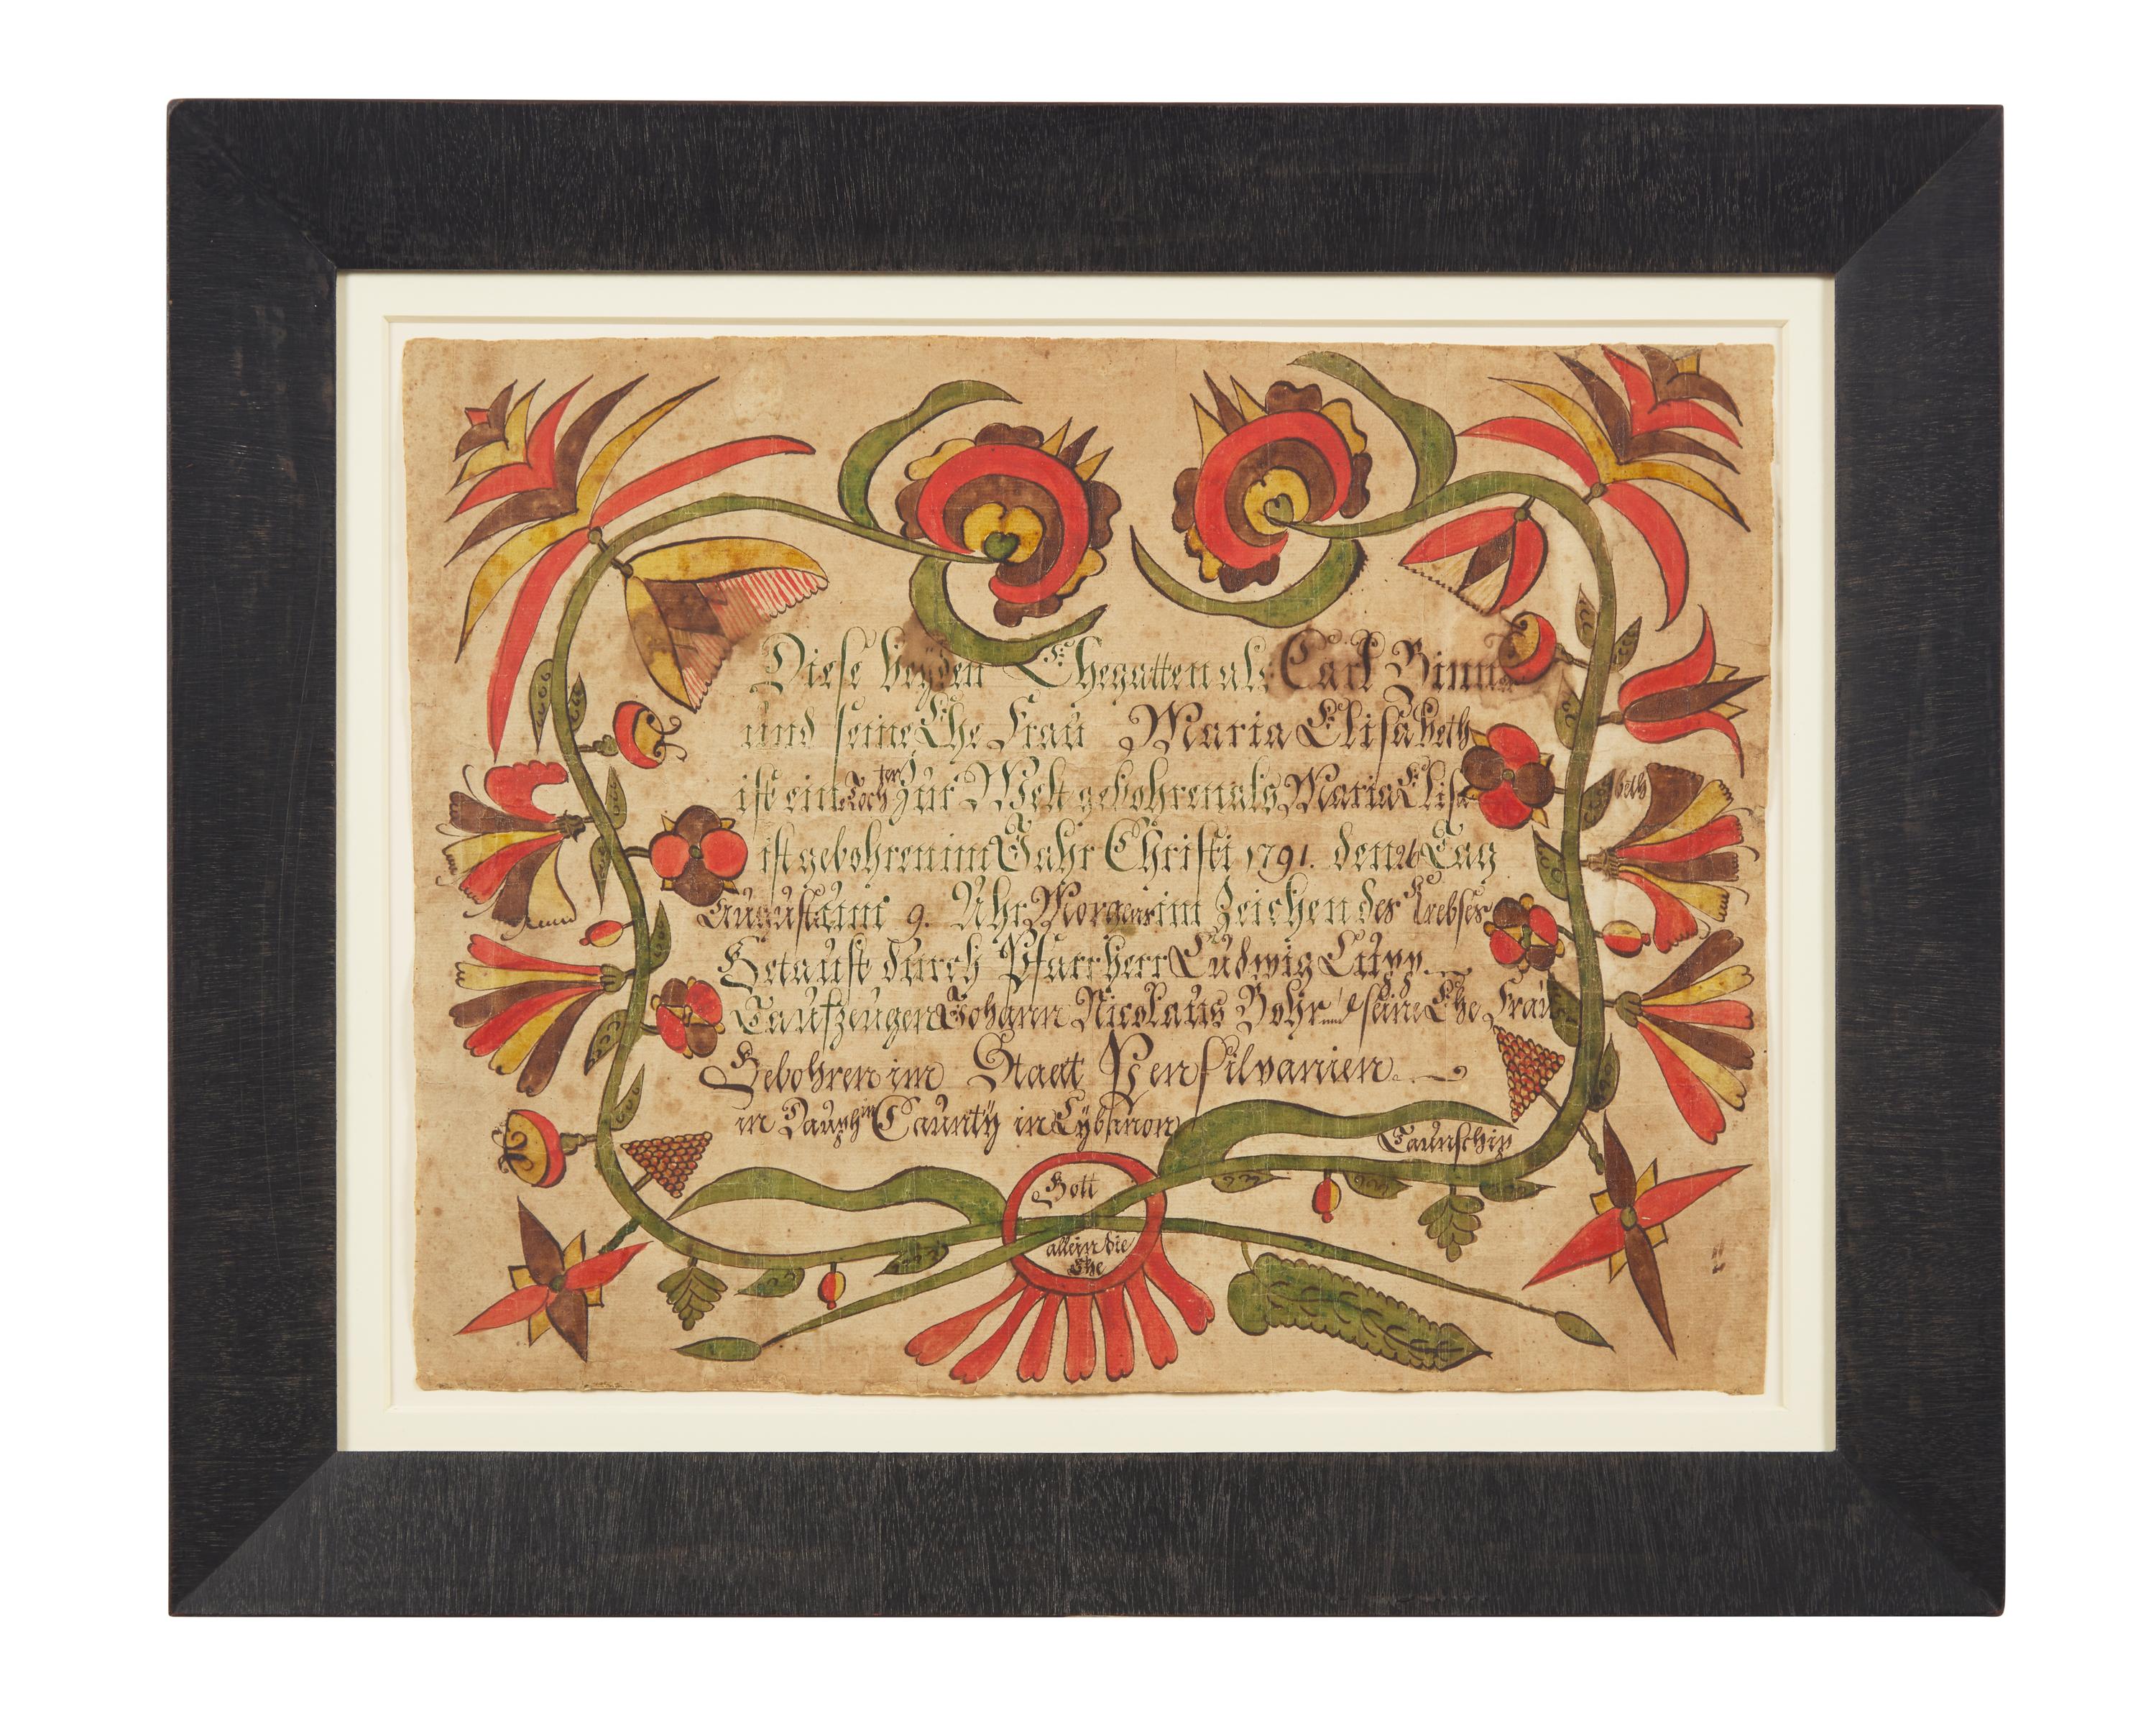 Diese beyden Ehegatten als Carl
und seine Ehe Frau Maria Elisabeth
ist ein Tochter zur Welt gebohren als Maria Elisabeth
ist gebohren im Jahr Christi 1791. den 26 Tag
August um 9. Uhr Morgens im Zeichen des Krebses
Getauft durch Pfarrherr Ludwig
Taufzeugen Johann Nicolaus Bohr und seine Ehe Frau
Gebohren im Staat Pensilvanien
in Dauphin Caunty in Lybanon
Taunschip
Gott
allein die
Ehe